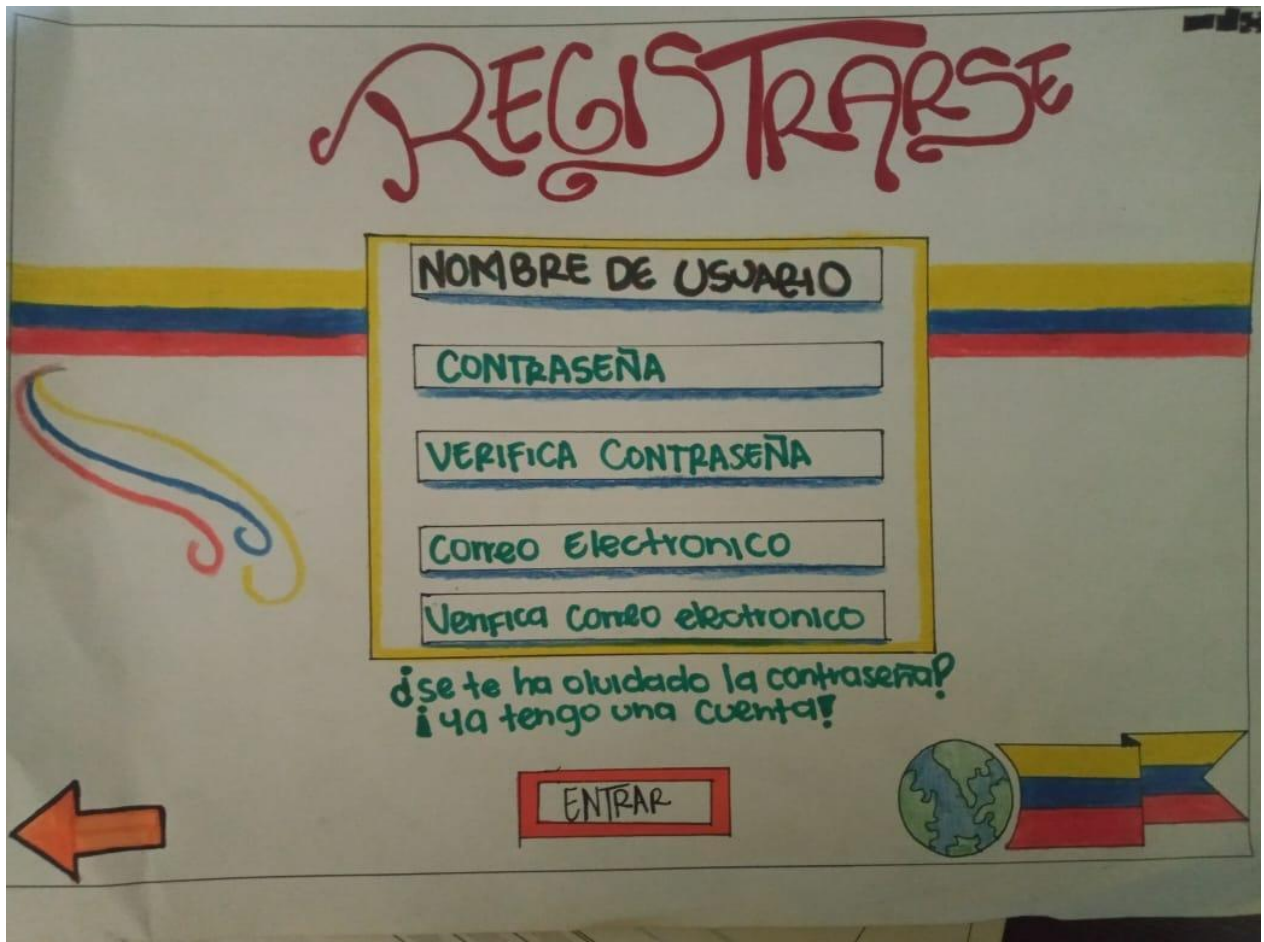 REGISTRARSE
NOMBRE DE USUARIO
CONTRASEÑA
VERIFICA CONTRASEÑA
Correo Electronico
Verifica Correo electronico
¿se te ha olvidado la contraseña?
¡ya tengo una cuenta!
ENTRAR